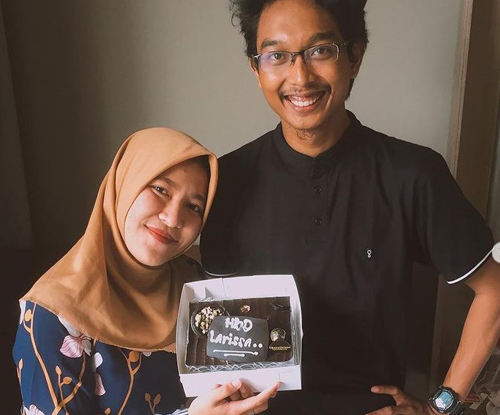 HBD
Larissa..